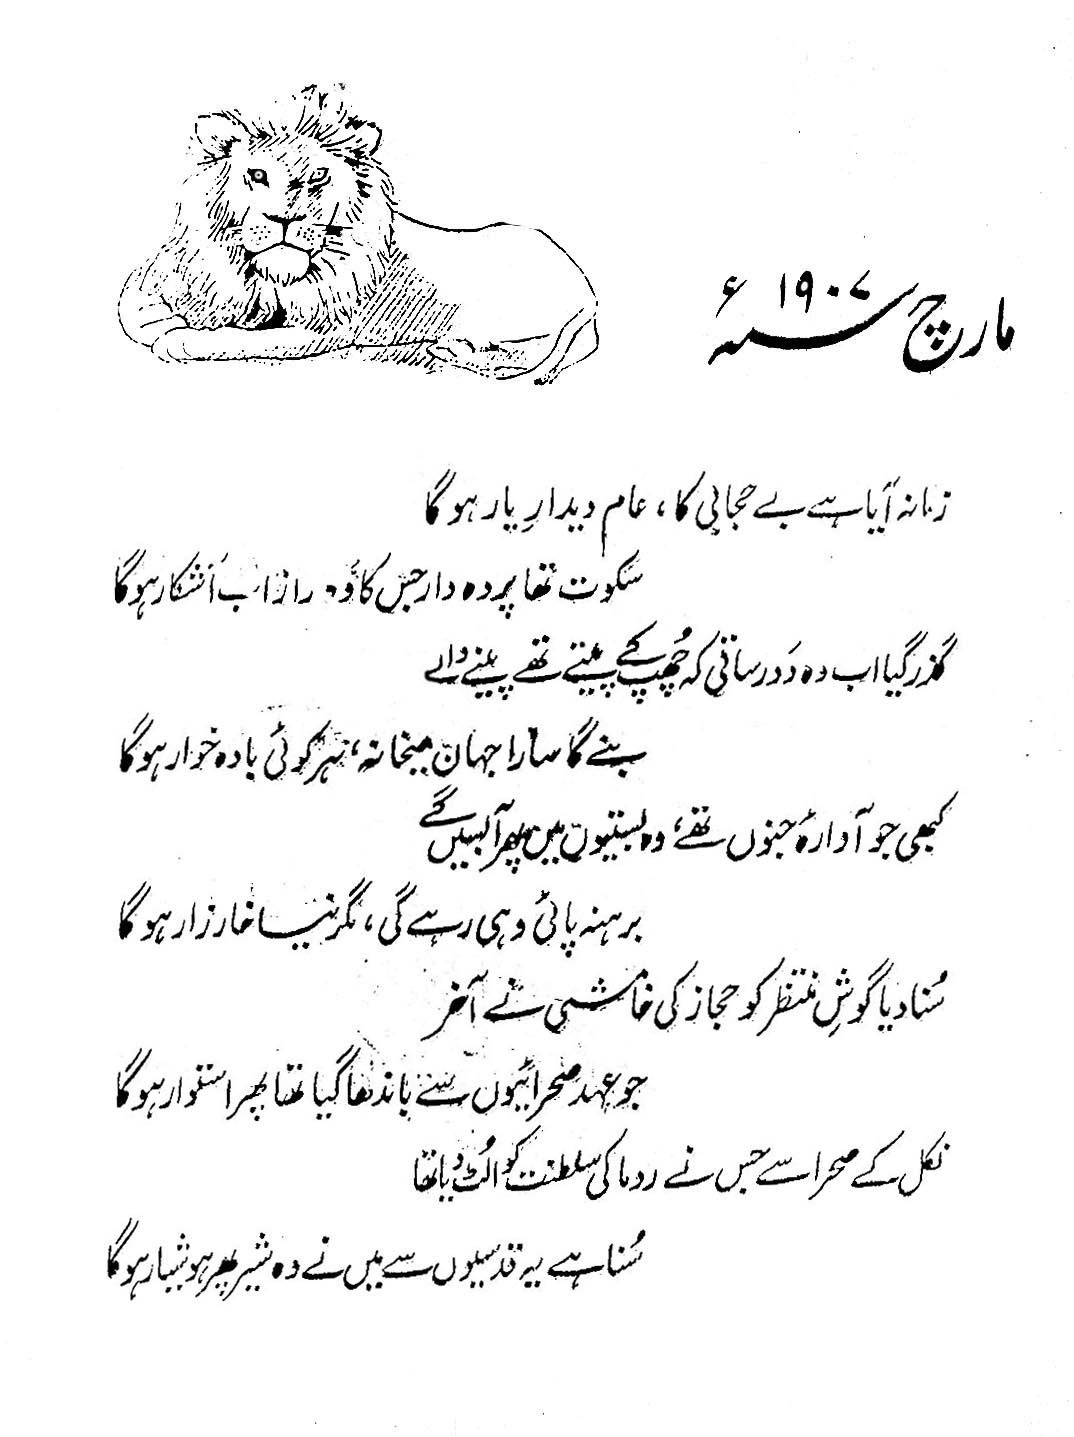 مارچ سنہ ۱۹۰۷ء
زمانہ آیا ہے بے حجابی کا، عام دیدارِ یار ہوگا
سکوت تھا پردہ دار جس کا وہ راز اب آشکار ہوگا
گذر گیا اب وہ دَورِ ساقی کہ چُھپ کے پیتے تھے پینے والے
بنے گا سارا جہان میخانہ، ہر کوئی بادہ خوار ہوگا
کبھی جو آوارۂ جنوں تھے، وہ بستیوں میں پھر آ بسیں گے
برہنہ پائی وہی رہے گی، مگر نیا خارزار ہوگا
سُنا دیا گوشِ منتظر کو حجاز کی خامشی نے آخر
جو عہد صحرائیوں سے باندھا گیا تھا پھر استوار ہوگا
نکل کے صحرا سے جس نے روما کی سلطنت کو اُلٹ دیا تھا
سُنا ہے یہ قدسیوں سے میں نے وہ شیر پھر ہوشیار ہوگا